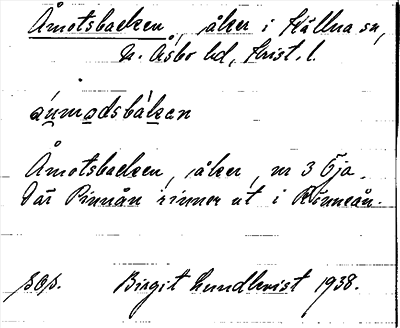 Åmotsbacken, åker i Källna sn,
N. Åsbo hd, Krist. l.
áųmɑdsbàkan
Åmotsbacken, åker, nr 3 Öja.
Där Pinnån rinner ut i Rönneån.
sgs. Birgit Lundkvist 1938.